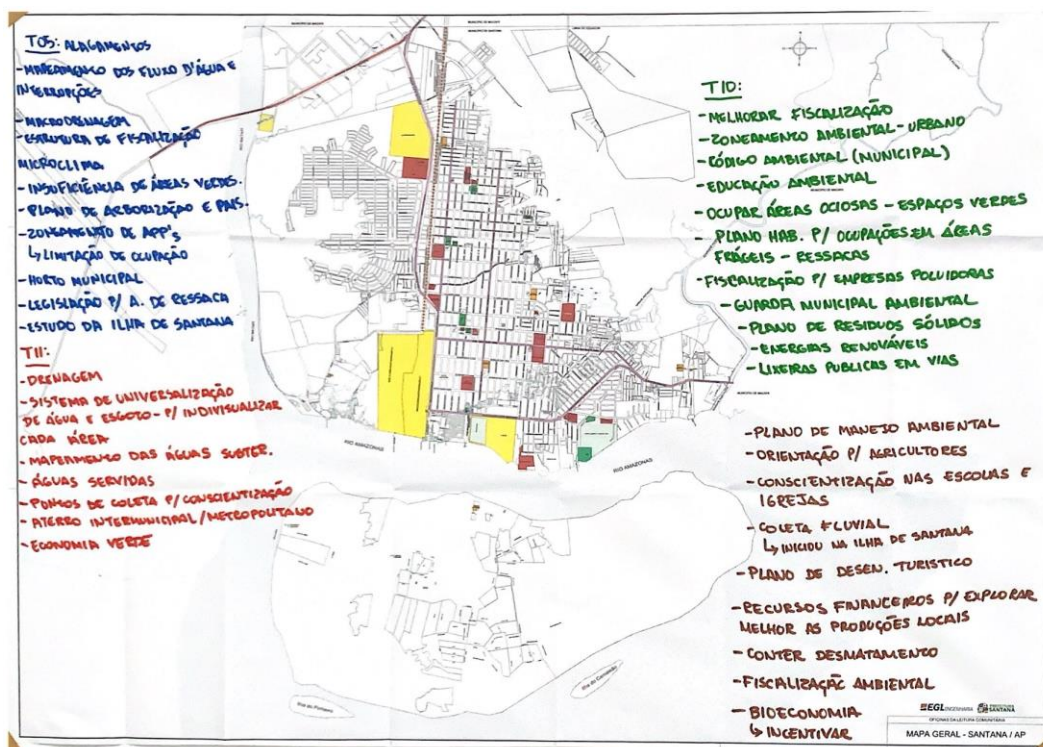 MUNICÍPIO DE MACAPÁ
MUNICÍPIO DE SANTANA
T05: ALAGAMENTOS
- MAPEAMENTO DOS FLUXO D'ÁGUA E
INTERRUPÇÕES
- MACRODRENAGEM
- ESTRUTURA DE FISCALIZAÇÃO
MICROCLIMA
- INSUFICIÊNCIA DE ÁREAS VERDES.
- PLANO DE ARBORIZAÇÃO E PAIS.
- ZONEAMENTO DE APP's
↳ LIMITAÇÃO DE OCUPAÇÃO
- HORTO MUNICIPAL
- LEGISLAÇÃO P/ A. DE RESSACA
- ESTUDO DA ILHA DE SANTANA
T11:
- DRENAGEM
- SISTEMA DE UNIVERSALIZAÇÃO
DE ÁGUA E ESGOTO - P/ INDIVISUALIZAR
CADA ÁREA
- MAPEAMENTO DAS ÁGUAS SUBTER.
- ÁGUAS SERVIDAS
- PONTOS DE COLETA P/ CONSCIENTIZAÇÃO
- ATERRO INTERMUNICIPAL/METROPOLITANO
- ECONOMIA VERDE
T10:
- MELHORAR FISCALIZAÇÃO
- ZONEAMENTO AMBIENTAL - URBANO
- CÓDIGO AMBIENTAL (MUNICIPAL)
- EDUCAÇÃO AMBIENTAL
- OCUPAR ÁREAS OCIOSAS - ESPAÇOS VERDES
- PLANO HAB. P/ OCUPAÇÕES EM ÁREAS
FRÁGEIS - RESSACAS
- FISCALIZAÇÃO P/ EMPRESAS POLUIDORAS
- GUARDA MUNICIPAL AMBIENTAL
- PLANO DE RESIDUOS SÓLIDOS
- ENERGIAS RENOVÁVEIS
- LIXEIRAS PUBLICAS EM VIAS
- PLANO DE MANEJO AMBIENTAL
- ORIENTAÇÃO P/ AGRICULTORES
- CONSCIENTIZAÇÃO NAS ESCOLAS E
IGREJAS
- COLETA FLUVIAL
↳ INICIOU NA ILHA DE SANTANA
- PLANO DE DESEN. TURISTICO
- RECURSOS FINANCEIROS P/ EXPLORAR
MELHOR AS PRODUÇÕES LOCAIS
- CONTER DESMATAMENTO
- FISCALIZAÇÃO AMBIENTAL
- BIOECONOMIA
↳ INCENTIVAR
RIO AMAZONAS
RIO AMAZONAS
MUNICÍPIO DE MACAPÁ
EGL ENGENHARIA
PREFEITURA
SANTANA
OFICINAS DA LEITURA COMUNITÁRIA
MAPA GERAL - SANTANA / AP